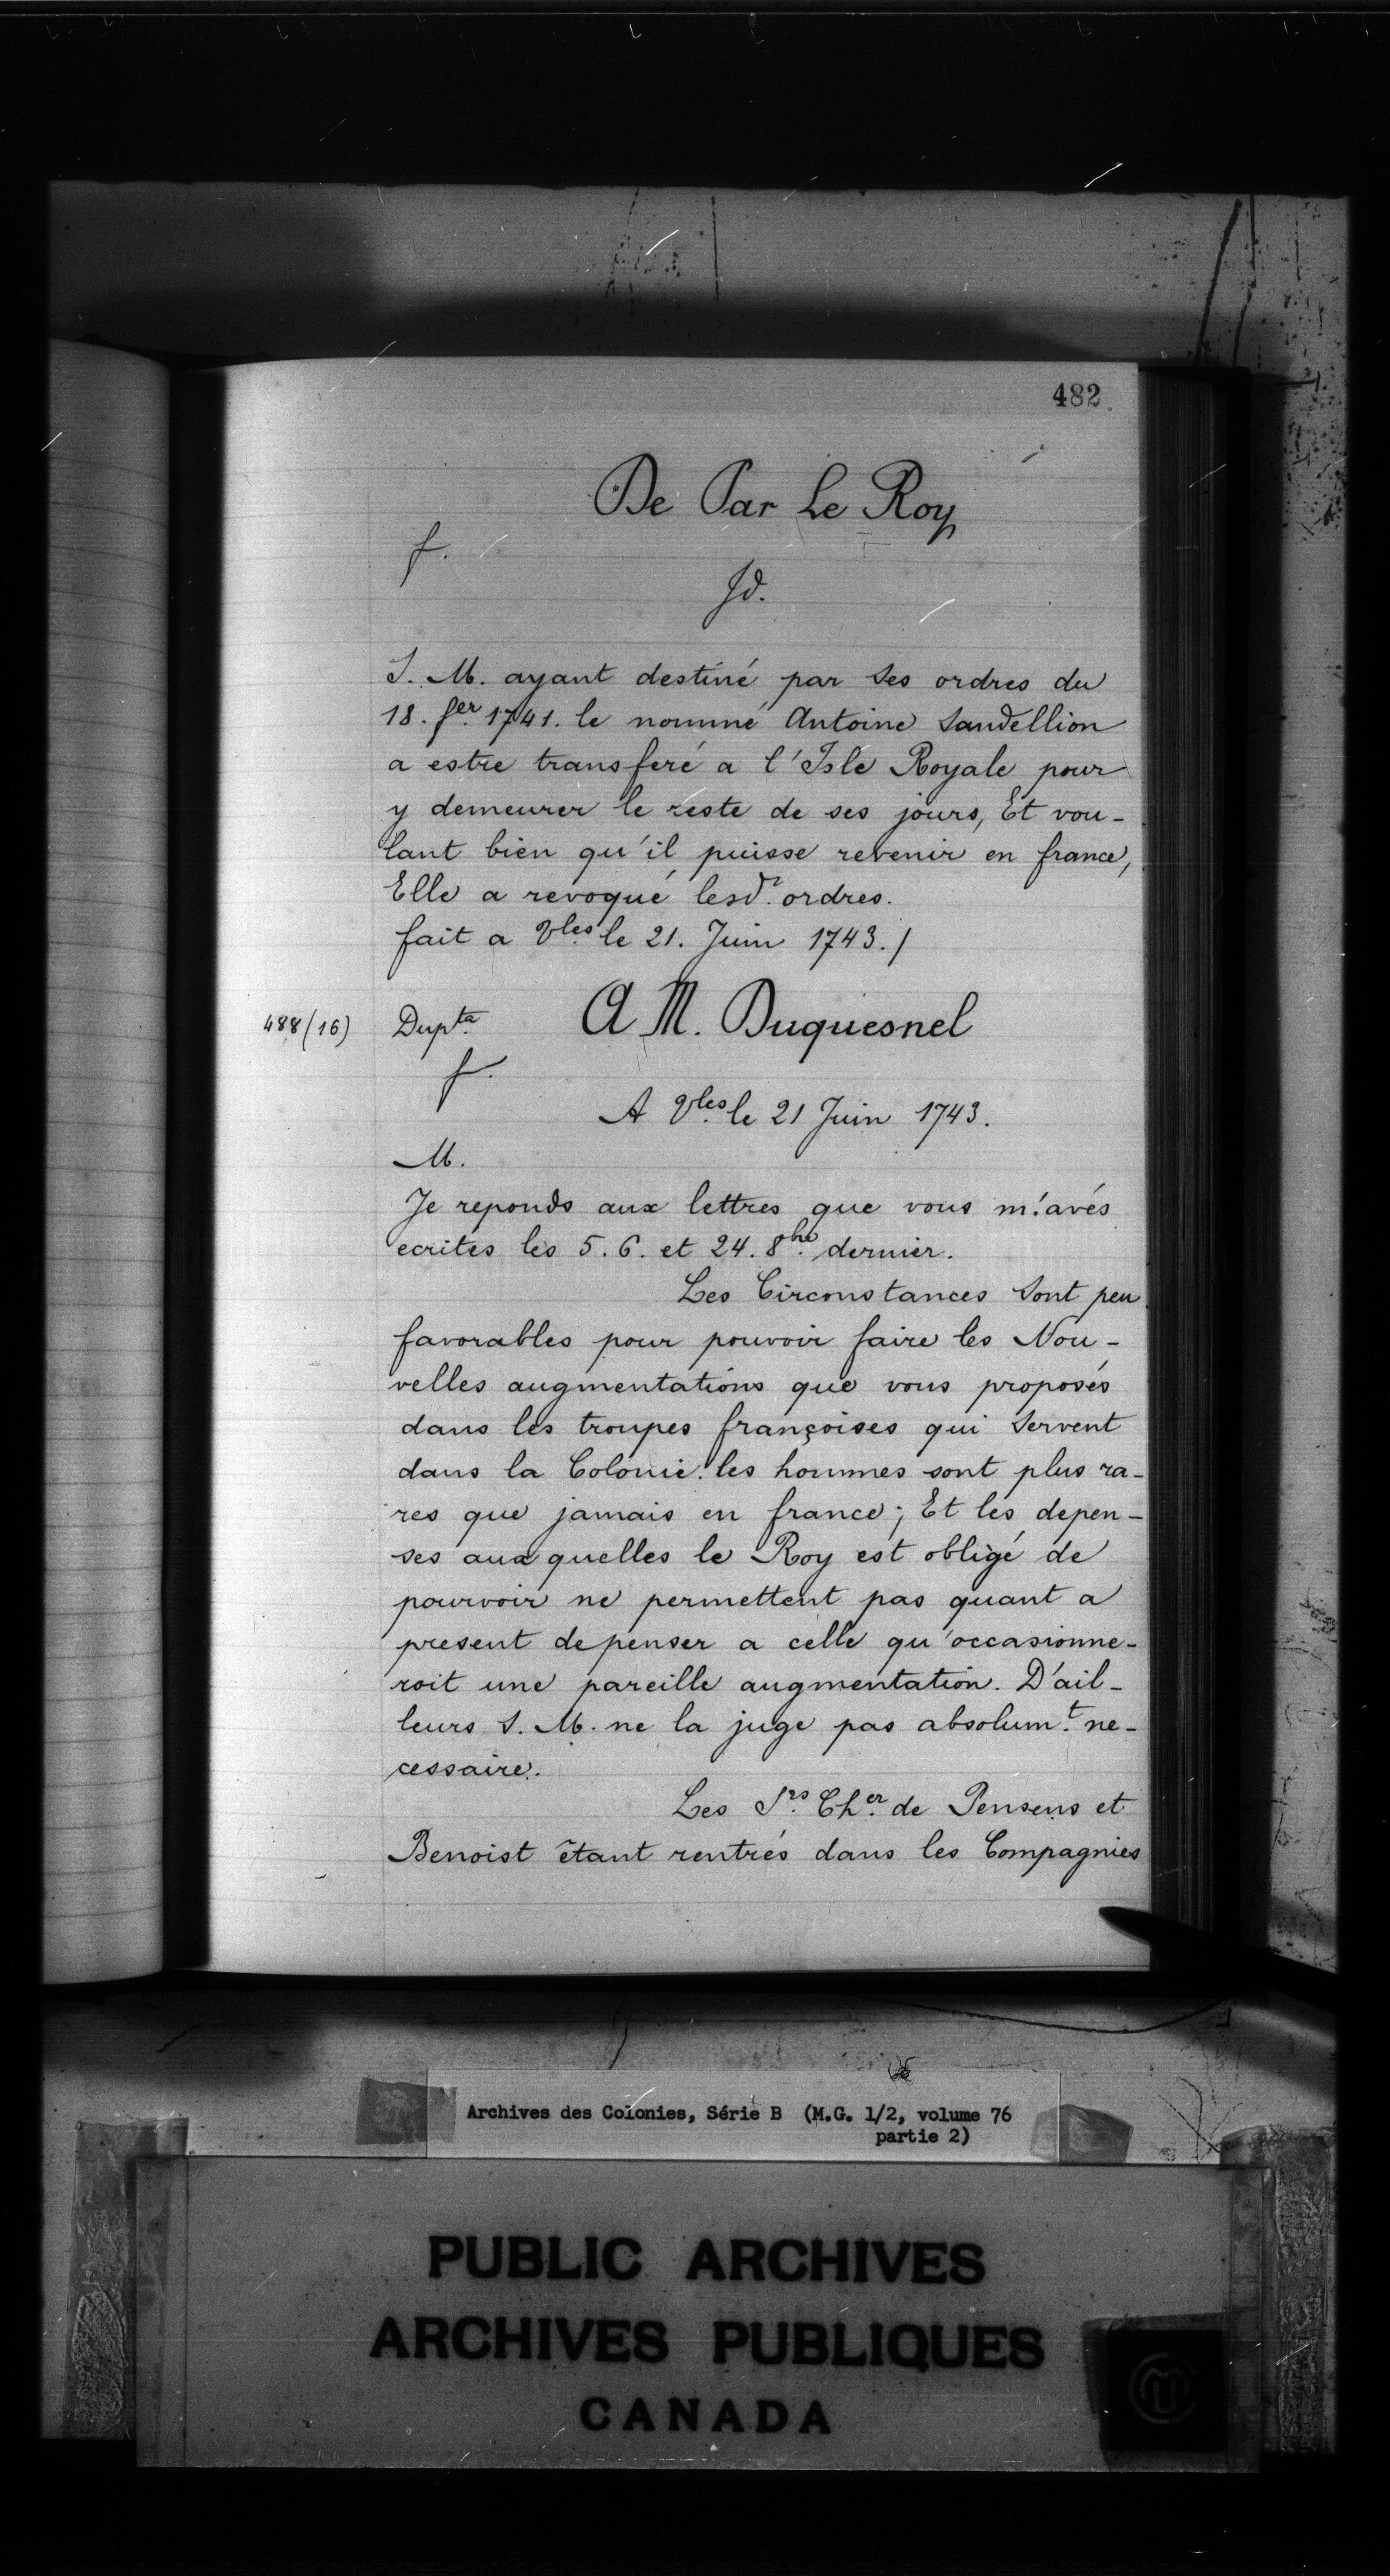 482
De Par Le Roy
f.
Id.
S. M. ayant destiné par Ses ordres du
18. fer. 1741. le nommé Antoine Sandellion
a estre transferé a l'Isle Royale pour
y demeurer le reste de ses jours, Et vou-
lant bien qu'il puisse revenir en france,
Elle a revoqué lesd. ordres.
fait a Vles le 21. Juin 1743./
488(16) Dupta A M. Duquesnel
f.
A Vles. le 21 Juin 1743.
M.
Je reponds aux lettres que vous m'avés
ecrites les 5. 6. et 24. 8bre. dernier.
Les Circonstances Sont peu
favorables pour pouvoir faire les Nou-
velles augmentations que vous proposés
dans les troupes françoises qui Servent
dans la Colonie. les hommes sont plus ra-
res que jamais en france; Et les depen-
ses auxquelles le Roy est obligé de
pourvoir ne permettent pas quant a
present depenser a celle qu'occasionne-
roit une pareille augmentation. D'ail-
leurs S. M. ne la juge pas absolum.t ne-
cessaire.
Les Srs. Cher. de Pensens et
Benoist êtant rentrés dans les Compagnies
Archives des Colonies, Série B (M.G. 1/2, volume 76
partie 2)
PUBLIC ARCHIVES
ARCHIVES PUBLIQUES
CANADA